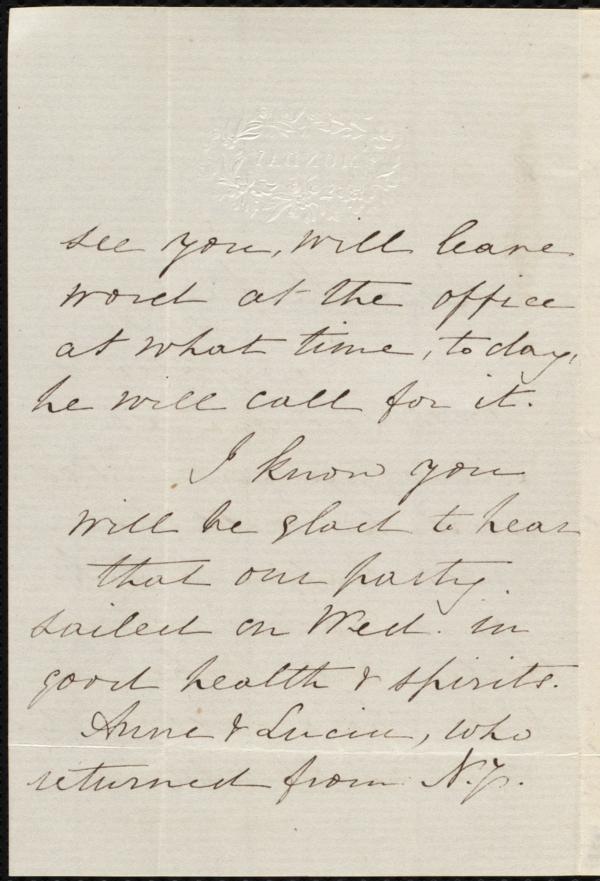 see you, will leave
word at the office
at what time, to day,
he will call for it.
I know you
will be glad to hear
that our party
sailed on Wed. in
good health & spirits.
Anne & Lucia, who
returned from N.Y.